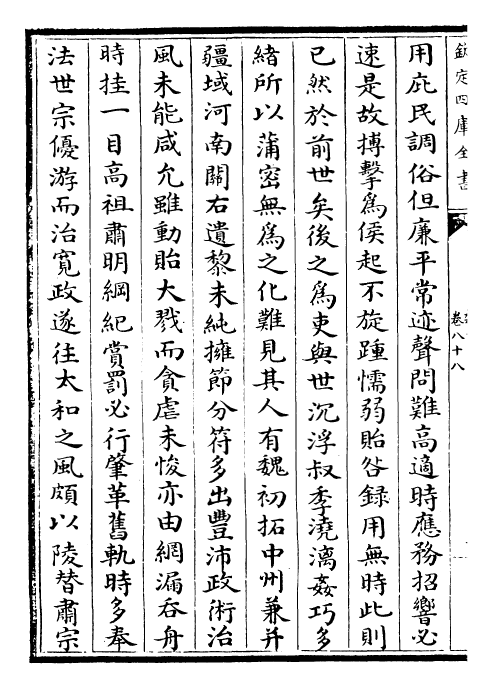 欽定四庫全書
卷八十八
用庇民調俗但廉平常迹聲問難高適時應務招響必
速是故搏擊為侯起不旋踵懦弱貽咎録用無時此則
已然於前世矣後之為吏與世沉浮叔季澆漓姦巧多
緒所以蒲密無為之化難見其人有魏初拓中州兼并
疆域河南關右遺黎未純擁節分符多出豐沛政術治
風未能咸允雖動貽大戮而貪虐未悛亦由網漏吞舟
時挂一目高祖肅明綱紀賞罰必行肇革舊軌時多奉
法世宗優游而治寬政遂往太和之風頗以陵替肅宗